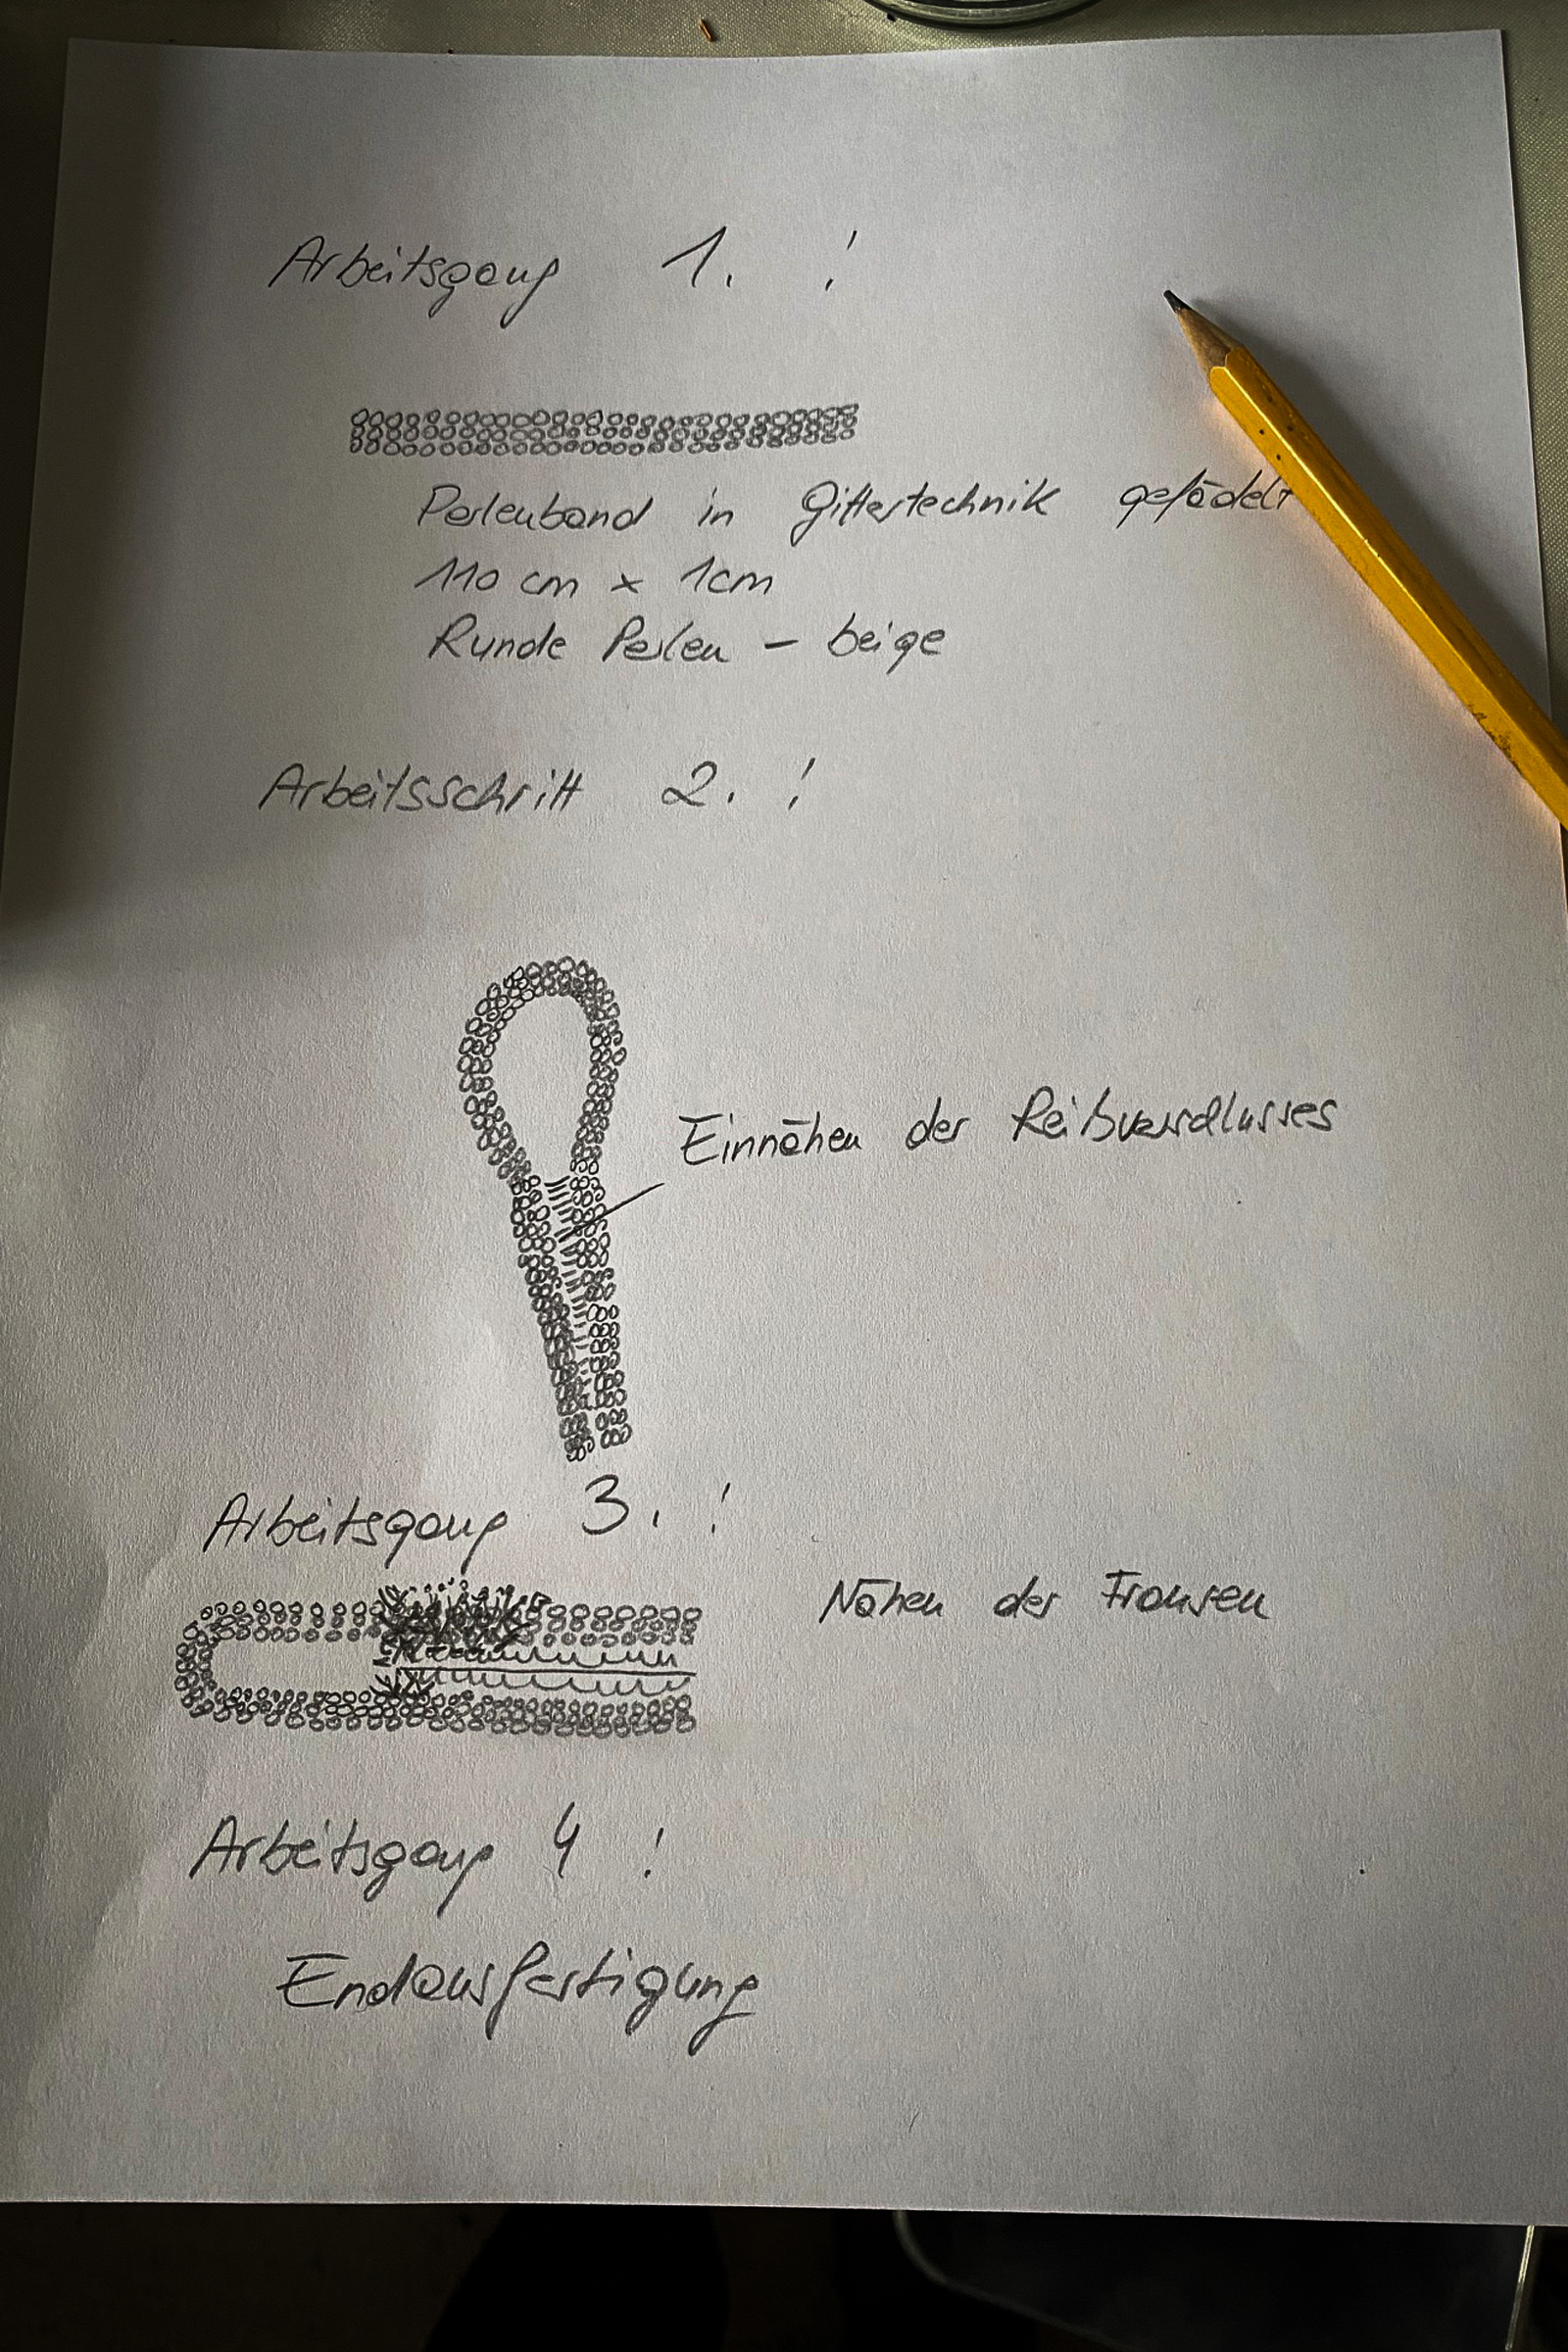 Arbeitsgang 1. !
Perlenband in Gittertechnik gefädelt
110 cm x 1cm
Runde Perlen – beige
Arbeitsschritt 2. !
Einnähen der Reißverschlusses
Arbeitsgang 3. !
Nähen der Fransen
Arbeitsgang 4 !
Endausfertigung